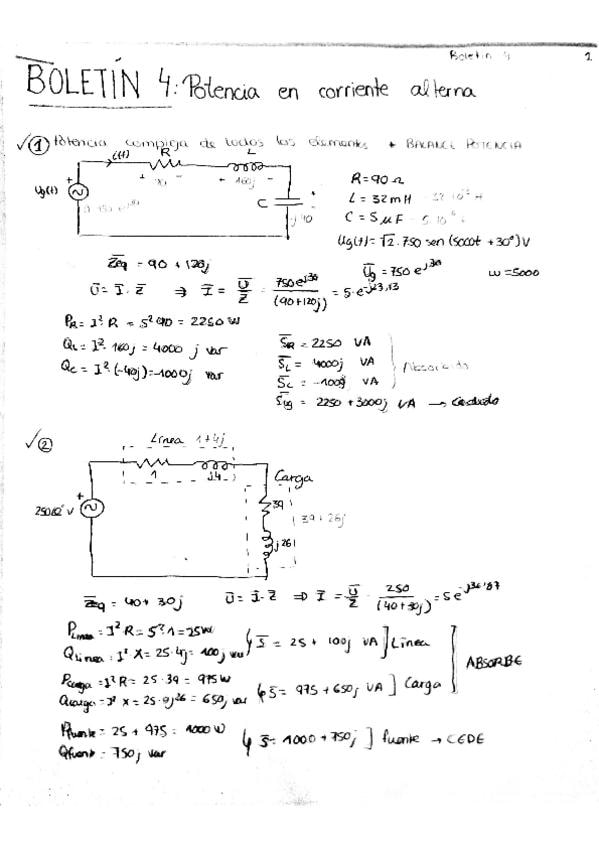 Boletín 4 1
BOLETÍN 4: Potencia en corriente alterna
① Potencia compleja de todos los elementos + BALANCE POTENCIA
i(t) R L
+ 90 - + 160j -
Ug(t) C
R = 90 Ω
L = 32 mH
C = 5 μF
Ug(t) = √2 · 750 sen (5000t + 30°) V
Zeq = 90 + 120j
Ug = 750 e^j30 ω = 5000
U = I · Z ⇒ I = U/Z = 750e^j30/(90+120j) = 5 · e^-j23,13
PR = I² · R = 5² · 90 = 2250 W
QL = I² · 160j = 4000 j var
QC = I² · (-40j) = -1000j var
SR = 2250 VA
SL = 4000j VA
SC = -1000j VA
Absorbido
Sug = 2250 + 3000j VA → Cedido
② Línea 1+4j
1 j4
Carga
250 V
39
j26
39+26j
Zeq = 40 + 30j U = I · Z ⇒ I = U/Z = 250/(40+30j) = 5 e^-j36'87
PLinea = I² · R = 5² · 1 = 25 W
QLinea = I² X = 25 · 4j = 100j var
S = 25 + 100j VA ] Línea
Pcarga = I² R = 25 · 39 = 975 W
Qcarga = I² X = 25 · j26 = 650j var
S = 975 + 650j VA ] Carga
ABSORBE
Pfuente = 25 + 975 = 1000 W
Qfuent = 750j var
S = 1000 + 750j ] fuente → CEDE